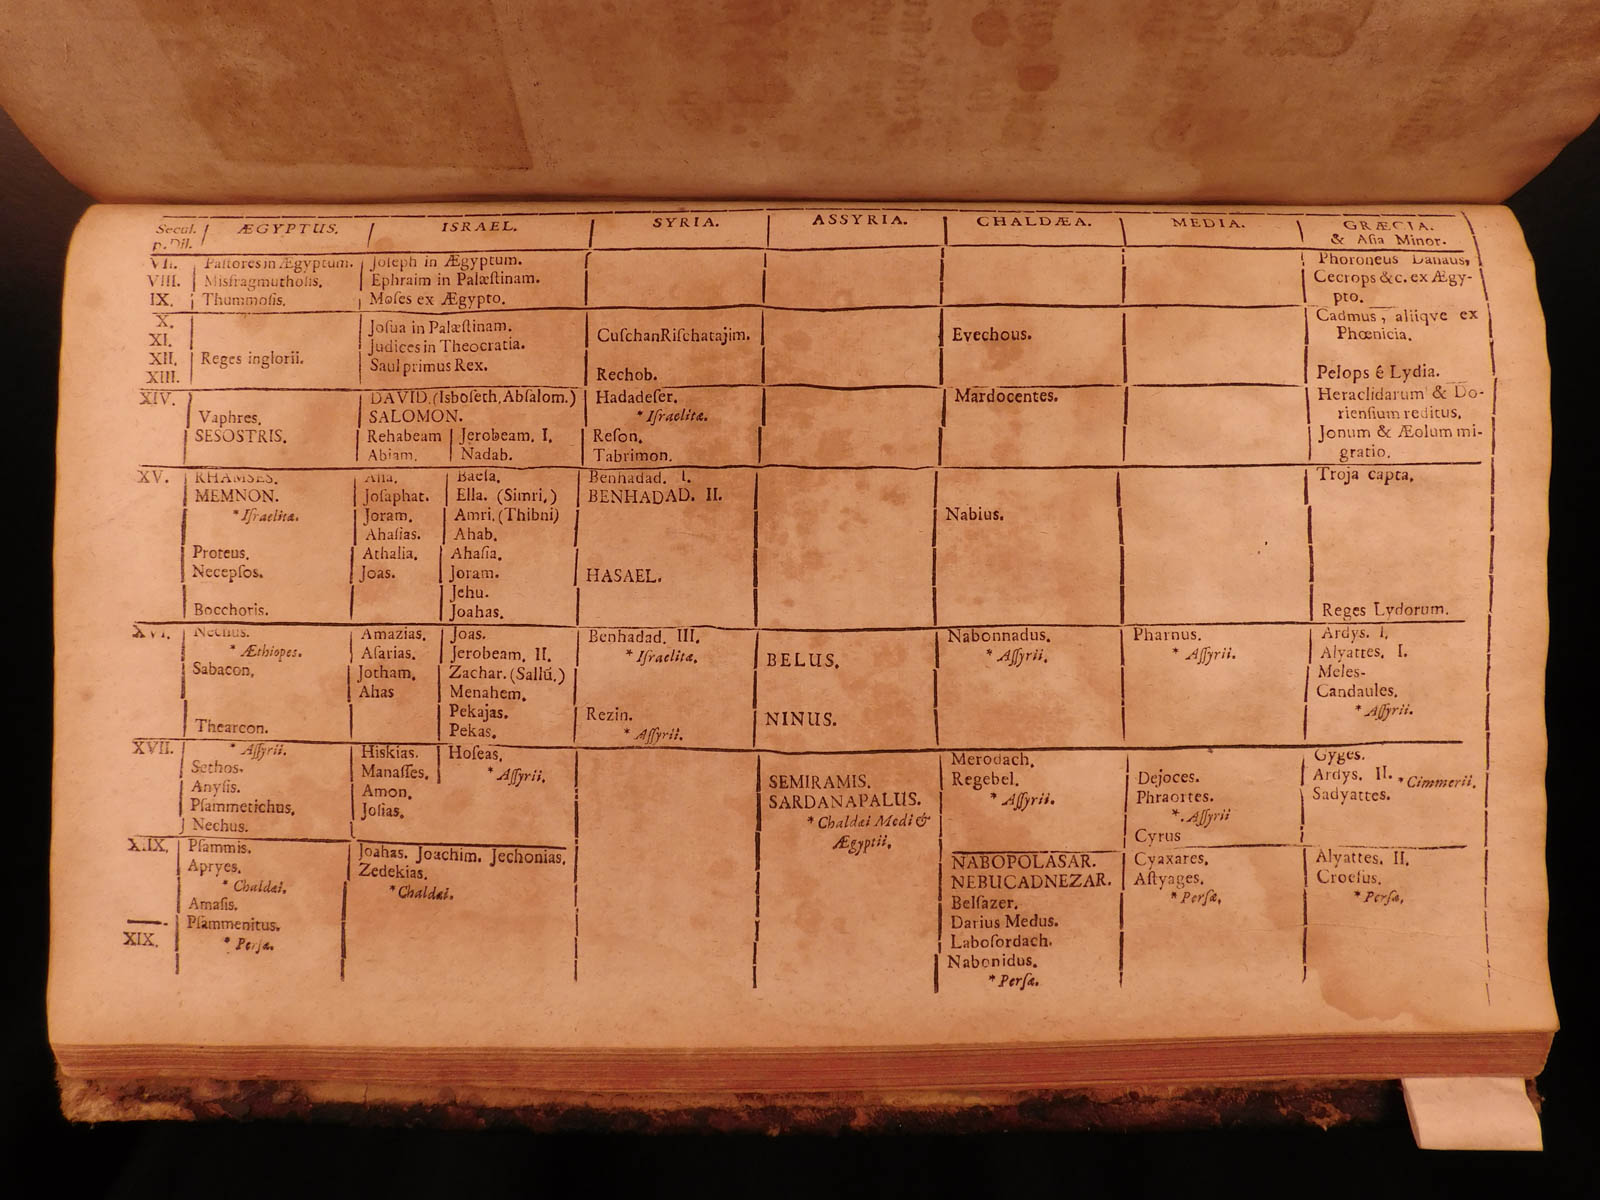 Secul. p. Dil. | ÆGYPTUS. | ISRAEL. | SYRIA. | ASSYRIA. | CHALDÆA. | MEDIA. | GRÆCIA. & Aſia Minor.
VII. Paſtores in Ægyptum. Joſeph in Ægyptum. Phoroneus Danaus,
VIII. Misfragmuthoſis. Ephraim in Palæſtinam. Cecrops &c. ex Ægy-
IX. Thummoſis. Moſes ex Ægypto. pto.
X. Joſua in Palæſtinam. Cadmus, aliiqve ex
XI. Judices in Theocratia. CuſchanRiſchatajim. Evechous. Phœnicia.
XII. Reges inglorii. Saul primus Rex.
XIII. Rechob. Pelops é Lydia.
XIV. DAVID. (Isboſeth, Abſalom.) Hadadeſer. Mardocentes. Heraclidarum & Do-
Vaphres. SALOMON. * Iſraelitæ. rienſium reditus.
SESOSTRIS. Rehabeam Jerobeam. I. Reſon. Jonum & Æolum mi-
Abiam. Nadab. Tabrimon. gratio.
XV. RHAMSES. Aſſa. Baeſa. Benhadad. I. Troja capta.
MEMNON. Joſaphat. Ella. (Simri,) BENHADAD. II.
* Iſraelitæ. Joram. Amri. (Thibni) Nabius.
Ahaſias. Ahab.
Proteus. Athalia. Ahaſia.
Necepſos. Joas. Joram. HASAEL.
Jehu.
Bocchoris. Joahas. Reges Lydorum.
XVI. Nechus. Amazias. Joas. Benhadad. III. Nabonnadus. Pharnus. Ardys. I.
* Æthiopes. Aſarias. Jerobeam. II. * Iſraelitæ. BELUS. * Aſſyrii. * Aſſyrii. Alyattes. I.
Sabacon. Jotham. Zachar. (Sallũ.) Meles-
Ahas Menahem. Candaules.
Pekajas. Rezin. NINUS. * Aſſyrii.
Thearcon. Pekas. * Aſſyrii.
XVII. * Aſſyrii. Hiskias. Hoſeas. Merodach. Gyges.
Sethos. Manaſſes. * Aſſyrii. SEMIRAMIS. Regebel. Dejoces. Ardys. II. * Cimmerii.
Anyſis. Amon. SARDANAPALUS. * Aſſyrii. Phraortes. Sadyattes.
Pſammetichus. Joſias. * Chaldæi Medi & *. Aſſyrii
Nechus. Ægyptii. Cyrus
XIIX. Pſammis. Joahas. Joachim. Jechonias. NABOPOLASAR. Cyaxares. Alyattes. II.
Apryes. Zedekias. NEBUCADNEZAR. Aſtyages. Croeſus.
* Chaldæi. * Chaldæi. Belſazer. * Perſæ. * Perſæ.
Amaſis. Darius Medus.
Pſammenitus. Laboſordach.
XIX. * Perſæ. Nabonidus.
* Perſæ.